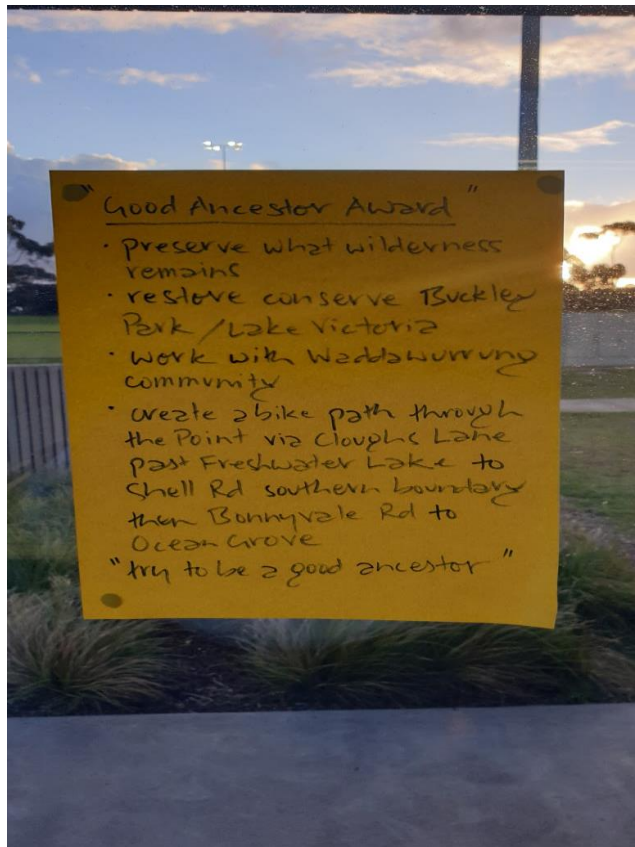 "Good Ancestor Award"
· preserve what wilderness
remains
· restore conserve Buckley
Park / Lake Victoria
· work with Waddawurrung
community
· create a bike path through
the Point via Cloughs Lane
past Freshwater Lake to
Shell Rd southern boundary
then Bonnyvale Rd to
Ocean Grove
"try to be a good ancestor"